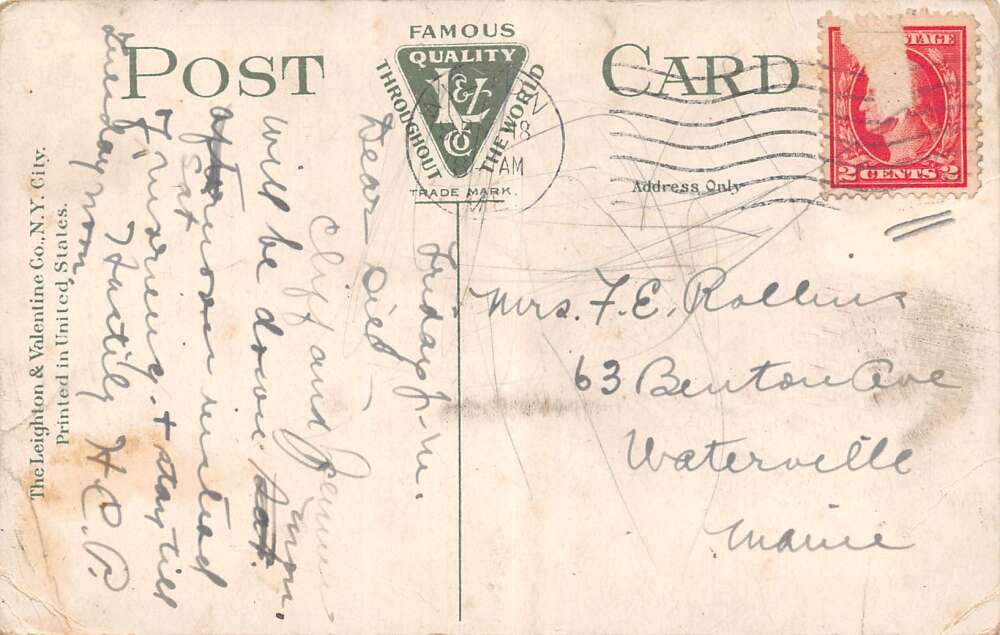 POST CARD
FAMOUS
QUALITY
THROUGHOUT THE WORLD
L&V
Co
TRADE MARK.
8
AM
ME.
POSTAGE
2 CENTS 2
Address Only
Mrs. F. E. Rollins
63 Benton Ave
Waterville
Maine
Friday P.M.
Dear
Cliff and
will be down Sat. morn.
afternoon instead
Sat
+ stay till
Sunday noon,
Hastily H.C.P.
The Leighton & Valentine Co., N.Y. City.
Printed in United States.